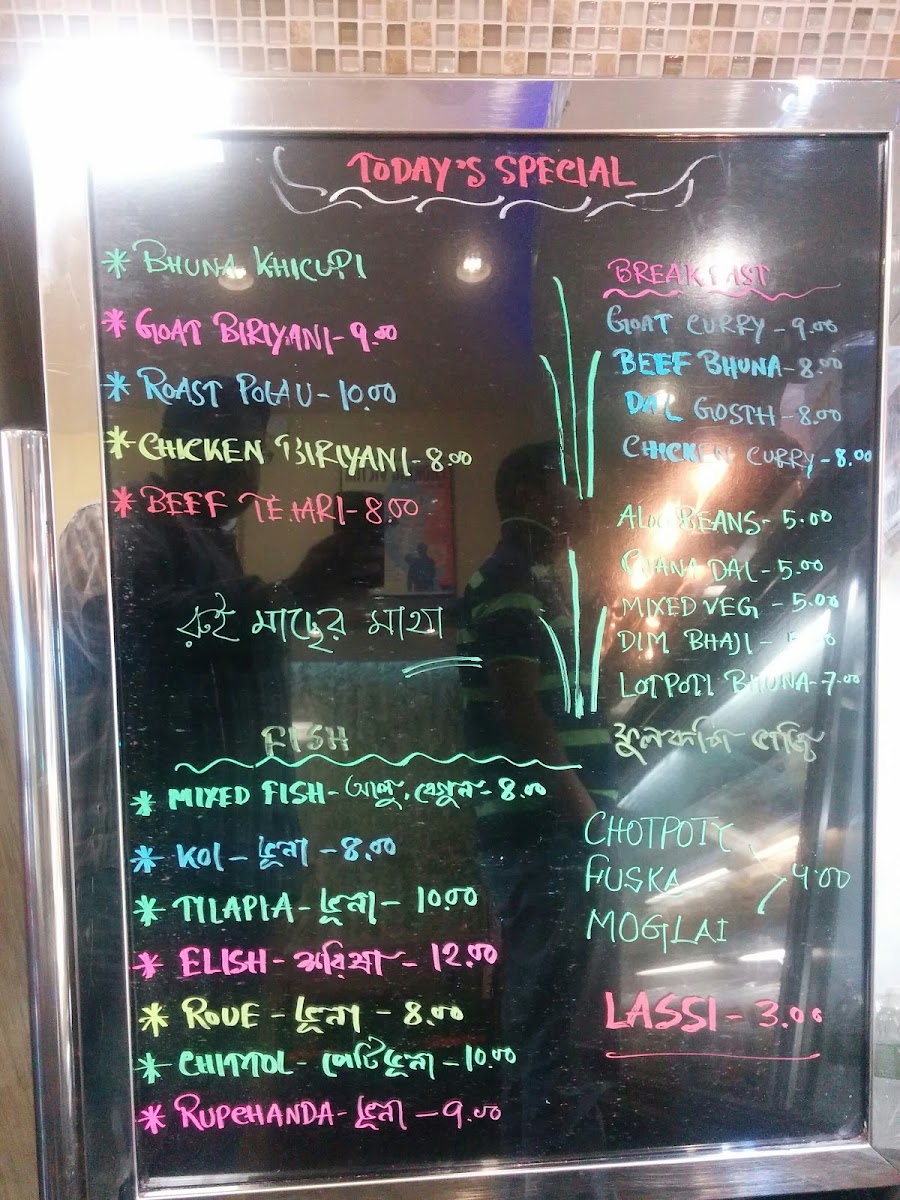 TODAY'S SPECIAL
* BHUNA KHICUPI
* GOAT BIRIYANI - 9.00
* ROAST POLAU - 10.00
* CHICKEN BIRIYANI - 8.00
* BEEF TEHARI - 8.00
রুই মাছের মাথা
FISH
* MIXED FISH - আলু, বেগুন - 8.00
* KOI - ভূনা - 8.00
* TILAPIA - ভূনা - 10.00
* ELISH - সরিষা - 12.00
* ROUE - ভূনা - 8.00
* CHITTOL - পেটি ভূনা - 10.00
* RUPCHANDA - ভূনা - 9.00
BREAKFAST
GOAT CURRY - 9.00
BEEF BHUNA - 8.00
DAL GOSTH - 8.00
CHICKEN CURRY - 8.00
ALOO BEANS - 5.00
CHANA DAL - 5.00
MIXED VEG - 5.00
DIM BHAJI -
LOTPOTI BHUNA - 7.00
ফুলকপি ভাজি
CHOTPOTY
FUSKA - 4.00
MOGLAI
LASSI - 3.00